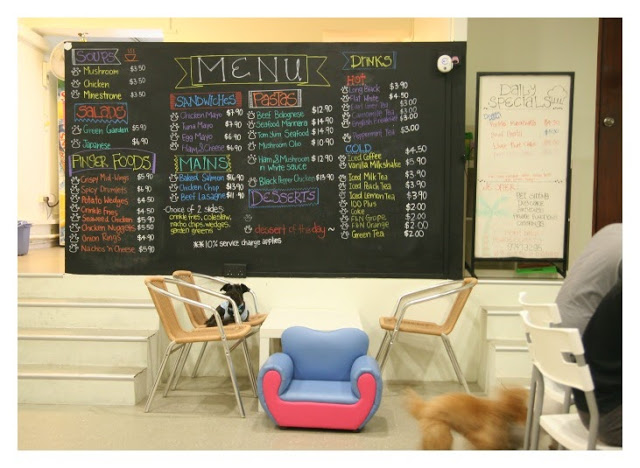 MENU
SOUPS
Mushroom $3.50
Chicken $3.50
Minestrone $3.50
SALADS
Green Garden $5.90
Japanese $6.90
FINGER FOODS
Crispy Mid-Wings $5.90
Spicy Drumlets $6.90
Potato Wedges $4.50
Crinkle Fries $4.50
Seaweed Chicken $5.90
Chicken Nuggets $5.50
Onion Rings $4.90
Nachos 'n Cheese $5.90
SANDWICHES
Chicken Mayo $7.90
Tuna Mayo $6.90
Egg Mayo $6.90
Ham & Cheese $6.90
MAINS
Baked Salmon
Chicken Chop
Beef Lasagne
-Choice of 2 sides:
crinkle fries, coleslaw,
nacho chips, wedges,
garden greens
PASTAS
Beef Bolognese $12.90
Seafood Marinara $14.90
Tom Yum Seafood $14.90
Mushroom Olio $10.90
Ham & Mushroom $12.90
in White Sauce
Black Pepper Chicken
DESSERTS
dessert of the day ~
*** 10% service charge applies
DRINKS
HOT
Long Black $3.90
Flat White $4.50
Earl Grey Tea $3.00
Camomile Tea $3.00
English Breakfast $3.00
Peppermint Tea $3.00
COLD
Iced Coffee $4.50
Vanilla Milkshake $5.90
Iced Milk Tea $3.90
Iced Peach Tea $3.90
Iced Lemon Tea $3.90
100 Plus $2.00
Coke $2.00
F&N Grape $2.00
F&N Orange $2.00
Green Tea $2.00
DAILY
SPECIALS